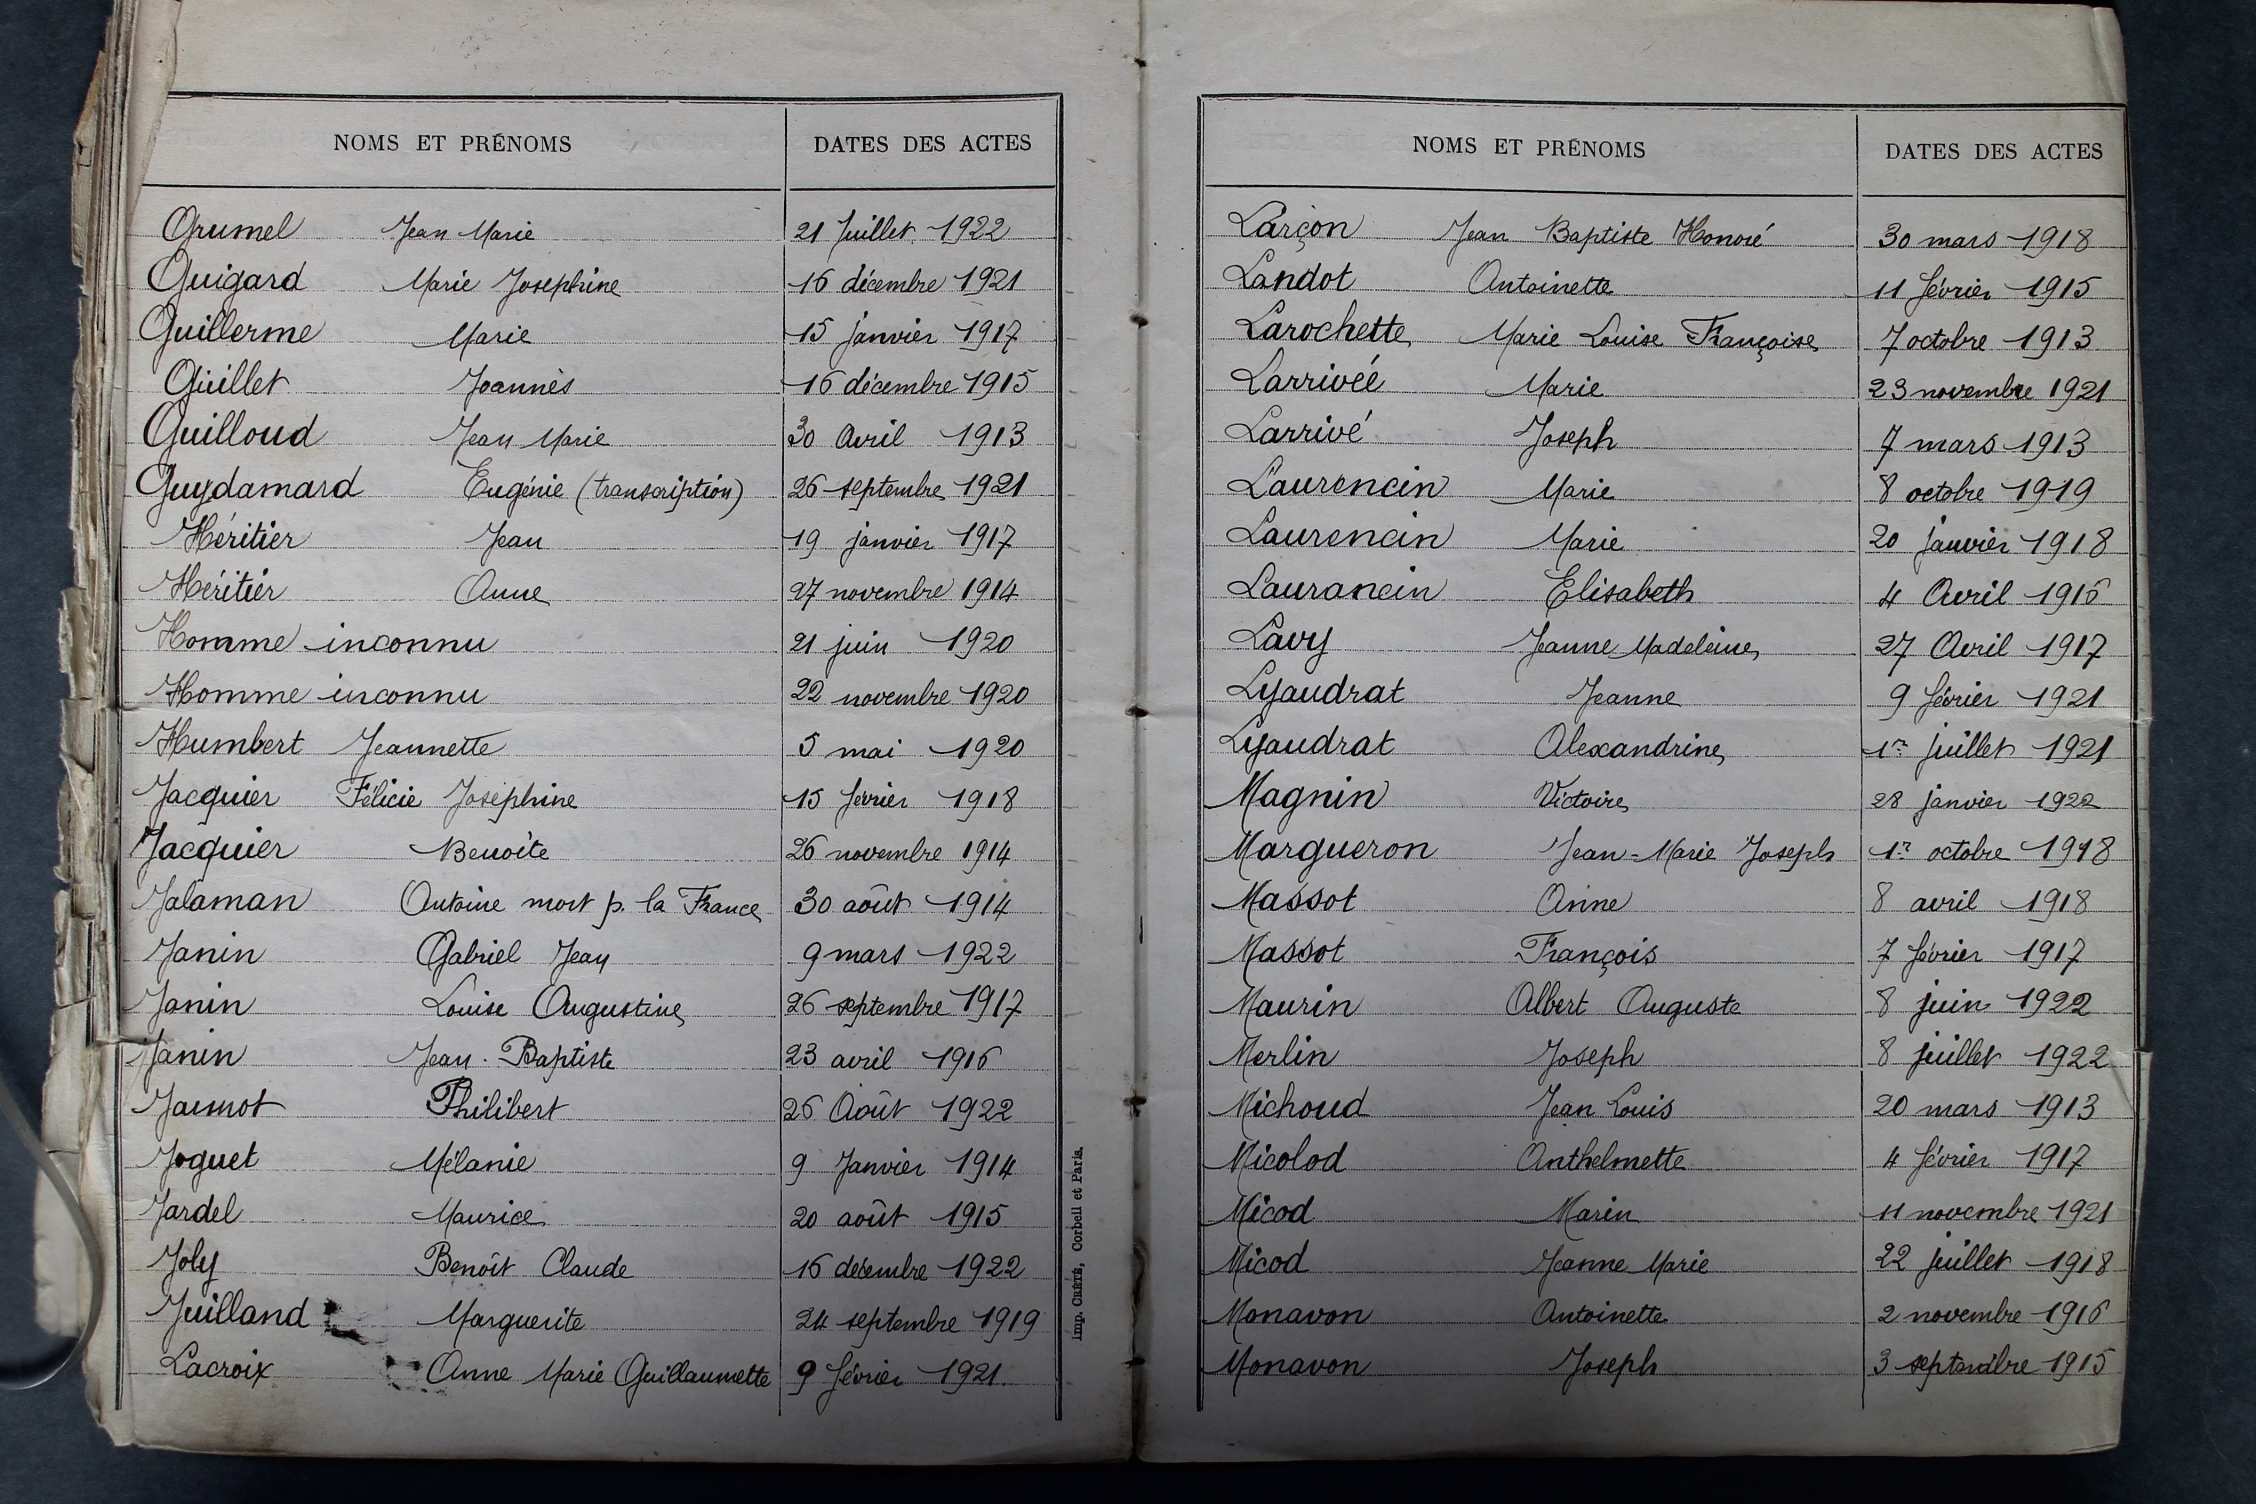 NOMS ET PRÉNOMS DATES DES ACTES
Grumel Jean Marie 21 Juillet 1922
Guigard Marie Josephine 16 décembre 1921
Guillerme Marie 15 janvier 1917
Guillet Joannès 16 décembre 1915
Guilloud Jean Marie 30 Avril 1913
Guydamard Eugénie (transcription) 26 septembre 1921
Héritier Jean 19 janvier 1917
Héritier Anne 27 novembre 1914
Homme inconnu 21 juin 1920
Homme inconnu 22 novembre 1920
Humbert Jeannette 5 mai 1920
Jacquier Félicie Joséphine 15 février 1918
Jacquier Benoîte 26 novembre 1914
Jalaman Antoine mort p. la France 30 août 1914
Janin Gabriel Jean 9 mars 1922
Janin Louise Augustine 26 septembre 1917
Janin Jean-Baptiste 23 avril 1916
Jammot Philibert 26 Août 1922
Joguet Mélanie 9 Janvier 1914
Jardel Maurice 20 août 1915
Joly Benoît Claude 16 décembre 1922
Juilland Marguerite 24 septembre 1919
Lacroix Anne Marie Guillaumette 9 février 1921
Imp. CRÉTÉ, Corbeil et Paris.
NOMS ET PRÉNOMS DATES DES ACTES
Larçon Jean Baptiste Honoré 30 mars 1918
Landot Antoinette 11 février 1915
Larochette Marie Louise Françoise 7 octobre 1913
Larrivéé Marie 23 novembre 1921
Larrivé Joseph 7 mars 1913
Laurencin Marie 8 octobre 1919
Laurencin Marie 20 janvier 1918
Laurancin Elisabeth 4 Avril 1916
Lavy Jeanne Madeleine 27 Avril 1917
Lyaudrat Jeanne 9 février 1921
Lyaudrat Alexandrine 1er juillet 1921
Magnin Victoire 28 janvier 1922
Margueron Jean-Marie Joseph 1er octobre 1918
Massot Anne 8 avril 1918
Massot François 7 février 1917
Maurin Albert Auguste 8 juin 1922
Merlin Joseph 8 juillet 1922
Michoud Jean Louis 20 mars 1913
Micolod Anthelmette 4 février 1917
Micod Marin 11 novembre 1921
Micod Jeanne Marie 22 juillet 1918
Monavon Antoinette 2 novembre 1916
Monavon Joseph 3 septembre 1915